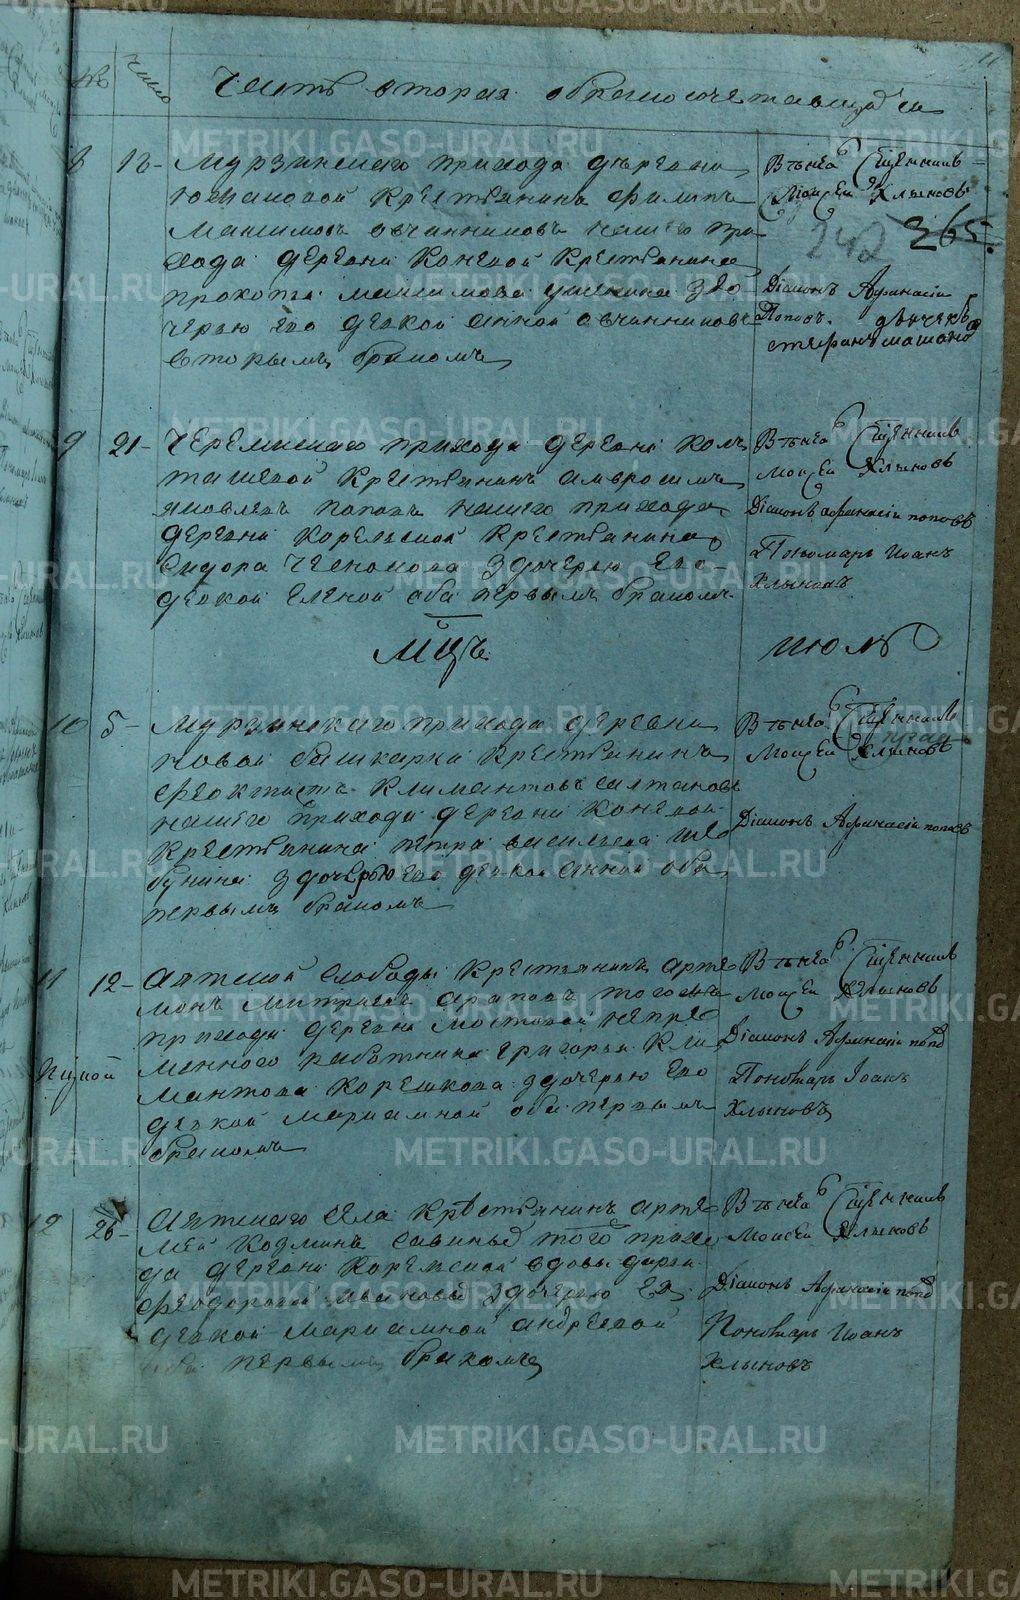 № число Часть вторая о бракосочетавшихся
8 18- Мурзинскаго прихода деревни
Южаковой крестьянинъ Филипъ
Максимовъ Овчинниковъ нашего при
хода деревни Коневой крестьянина
Прокопа Максимова здо
черью его девкой Анной Овчиннико
вторымъ бракомъ
Венча Священникъ
Моисей Хлыновъ
242 265.
Діаконъ Афанасій
Поповъ. дьячекъ
Стефанъ
9 21- Черемискаго прихода деревни Кол
ташевой крестьянинъ Амвросимъ
Яковлевъ Поповъ нашего прихода
деревни Корелской крестьянина
Сидора Чеснокова здочерью его
девкой Еленой оба первымъ бракомъ
Венча Священникъ
Моисей Хлыновъ
Діаконъ Афанасій Поповъ
Пономарь Иоанъ
Хлыновъ
Мцъ июль
10 5- Мурзинскаго прихода деревни
Новой Башкарки крестьянинъ
Феоктистъ Климантовъ Салтановъ
нашего прихода деревни Коневой
крестьянина Петра Васильева Ше
бунина здочерью его девкой Анной оба
первымъ бракомъ
Венча Священникъ
Моисей Хлыновъ
Діаконъ Афанасій Поповъ
11 12- Аятской слободы крестьянинъ Арте
монъ Митриевъ Араповъ того
прихода деревни Мостовой непре
менного работника Григорья Кли
мантова Корешкова здочерью его
девкой Мариамной оба первымъ
бракомъ
Венча Священникъ
Моисей Хлыновъ
Діаконъ Афанасій Попов
Пономарь Іоанъ
Хлыновъ
12 26- Аятскаго села крестьянинъ Арте
мей Козминъ того прихо
да деревни Корелской вдовы Дарьи
Феодоровой здочерью ея
девкой Мариамной Андреевой
оба первымъ бракомъ
Венча Священникъ
Моисей Хлыновъ
Діаконъ Афанасій Попов
Пономарь Иоанъ
Хлыновъ
METRIKI.GASO-URAL.RU